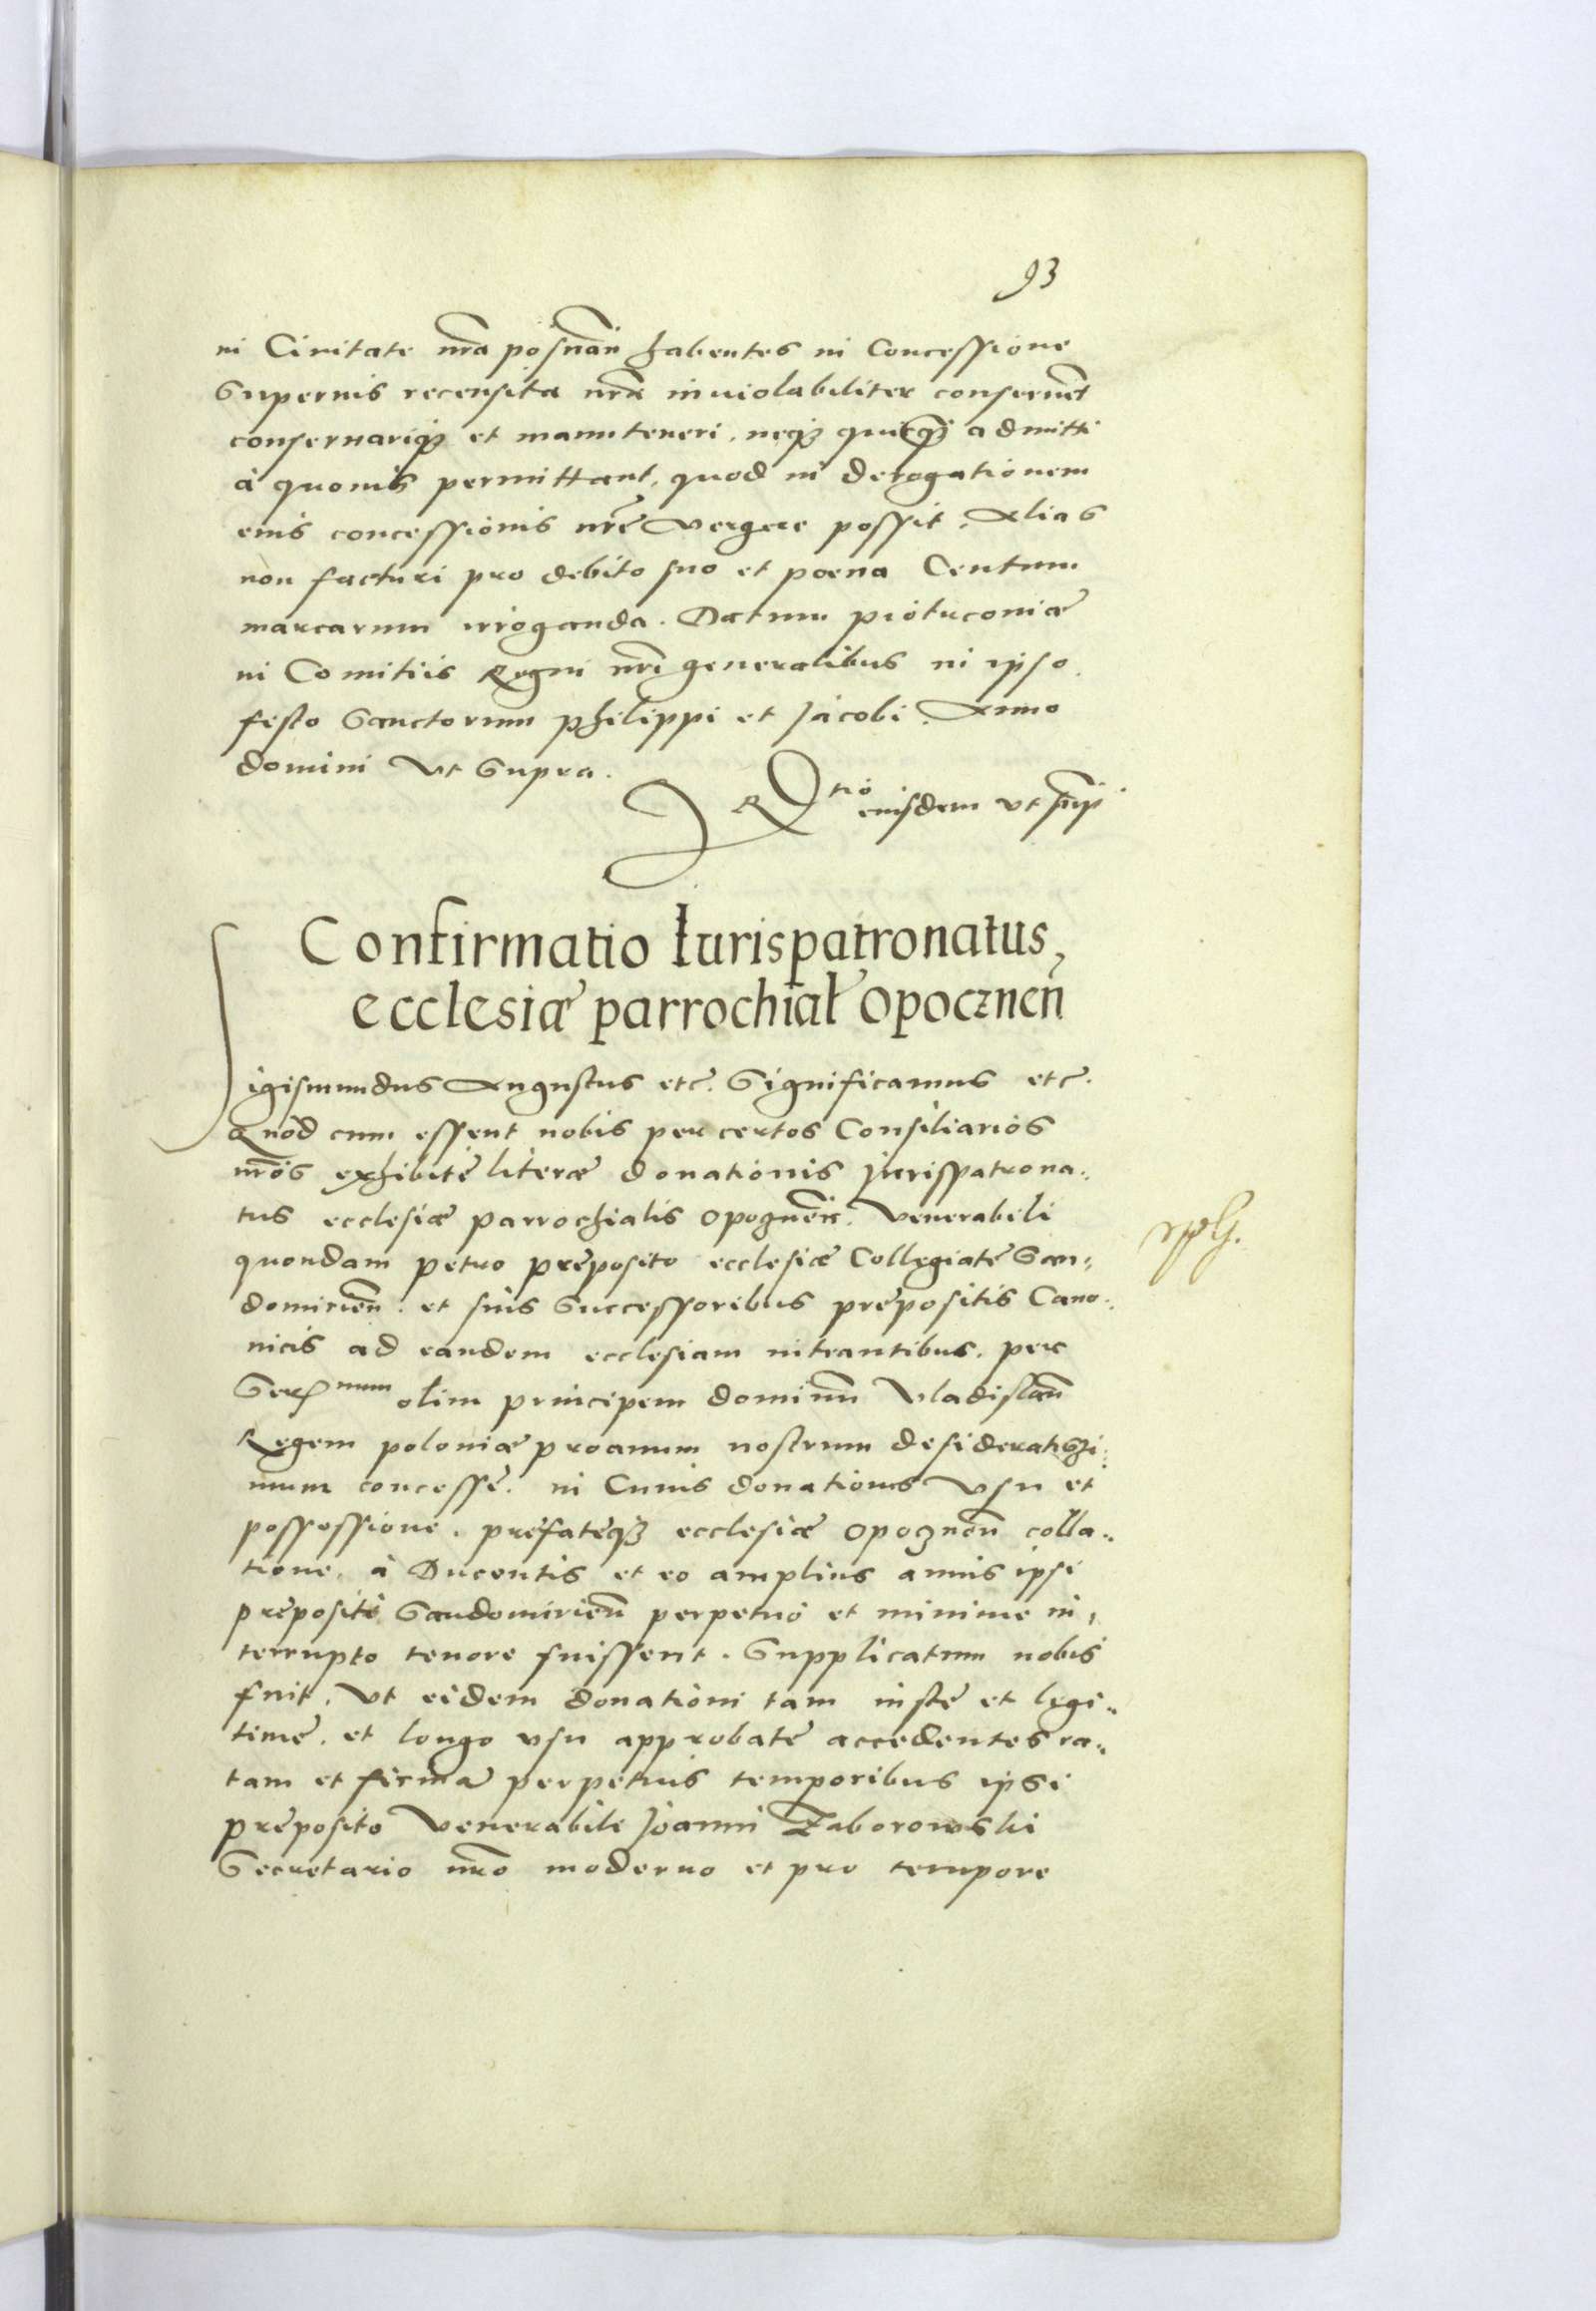 93
in Civitate nrã posnãn habentes in Concessione
Supernis recensita nrã inuiolabiliter conseruẽt
conseruariq3 et manuteneri, neq3 quicq̃3 admitti
à quouis permittant, quod in derogationem
eius concessionis nrẽ vergere possit. Alias
non facturi pro debito suo et poena Centum
marcarum irroganda. Datum piotrconiæ
in Comitiis Regni nrĩ generalibus in ipso
festo Sanctorum philippi et Jacobi. Anno
domini vt Supra.
Rtio eiusdem vt sup̃
Confirmatio Iurispatronatus,
ecclesiæ parrochiał Opoczneñ
Sigismundus Augustus etc. Significamus etc.
Quòd cum essent nobis per certos Consiliarios
nrõs exhibitę literæ donationis Jurispatrona..
tus ecclesiæ parrochialis Opoznẽn. Venerabili
quondam petro pręposito ecclesiæ Collegiatę San,,
domiriẽn. et suis Successoribus prępositis Cano..
nicis ad eandem ecclesiam intrantibus. per
Sermnum olim principem dominũ Vladislaũ
Regem poloniæ proauum nostrum desideratissi..
mum concessę. in Cuius donationis vsu et
possessione. pręfatęq3 ecclesiæ Opocznẽn colla..
tione. à Ducentis et eo amplius annis ipsi
prępositi Sandomiriẽn perpetuò et minime in,
terrupto tenore fuissent. Supplicatum nobis
fuit. vt eidem donationi tam iustę et legi..
timę. et longo vsu approbatę accedentes ra..
tam et firmã perpetuis temporibus ipsi
pręposito Venerabili Joanni Zaborowski
Secretario nrõ moderno et pro tempore